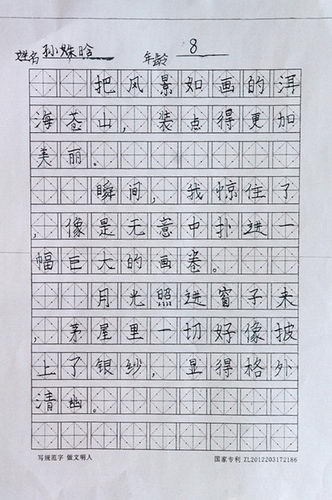 姓名 孙姝晗 年龄 8
把风景如画的洱
海苍山，装点得更加
美丽。
瞬间，我惊住了
，像是无意中扑进一
幅巨大的画卷。
月光照进窗子来
，茅屋里一切好像披
上了银纱，显得格外
清幽。
写规范字 做文明人 国家专利 ZL2012203172186